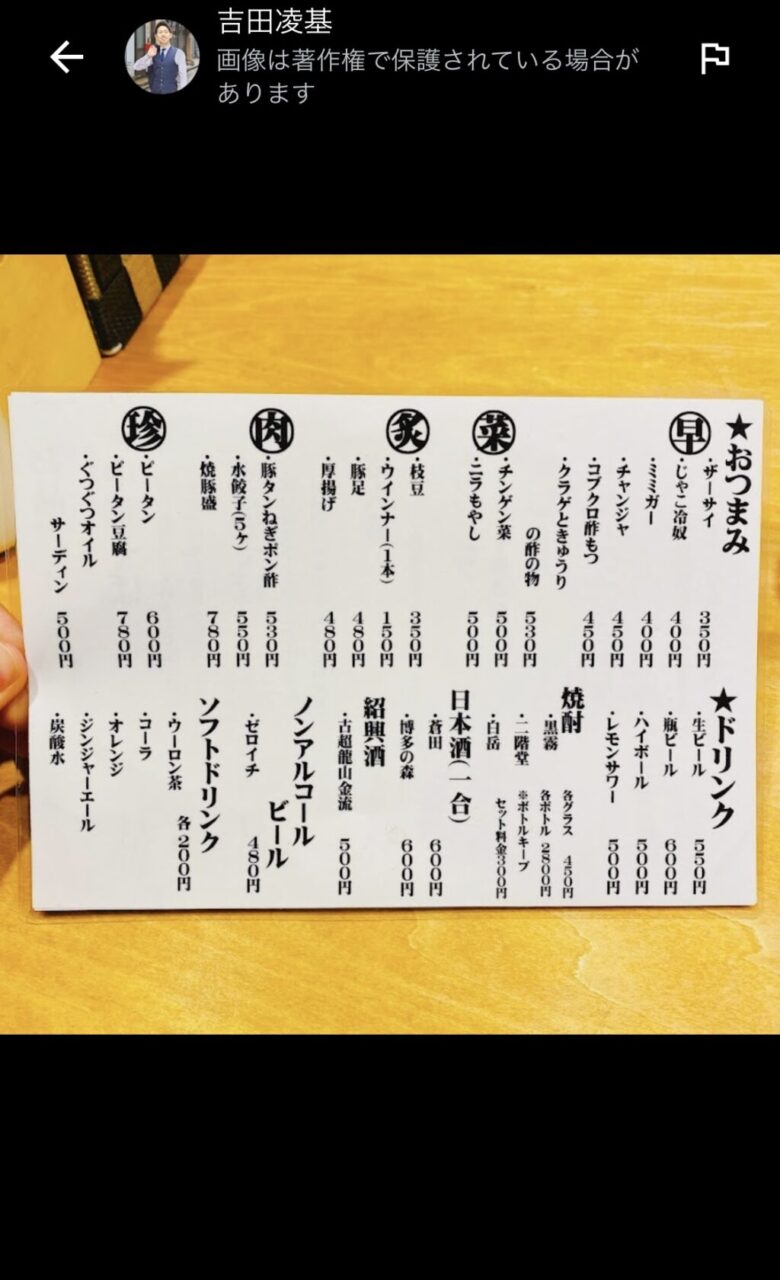 吉田凌基
画像は著作権で保護されている場合が
あります
★おつまみ
早
・ザーサイ 350円
・じゃこ冷奴 400円
・ミミガー 400円
・チャンジャ 450円
・コブクロ酢もつ 450円
・クラゲときゅうり
の酢の物 530円
菜
・チンゲン菜 500円
・ニラもやし 500円
炙
・枝豆 350円
・ウインナー(1本) 150円
・豚足 480円
・厚揚げ 480円
肉
・豚タンねぎポン酢 530円
・水餃子(5ヶ) 550円
・焼豚盛 780円
珍
・ピータン 600円
・ピータン豆腐 780円
・ぐつぐつオイル
サーディン 500円
★ドリンク
・生ビール 550円
・瓶ビール 600円
・ハイボール 500円
・レモンサワー 500円
焼酎
各グラス 450円
・黒霧 各ボトル 2800円
・二階堂 ※ボトルキープ
・白岳 セット料金300円
日本酒(一合)
・蒼田 600円
・博多の森 600円
紹興酒
・古超龍山金流 500円
ノンアルコール
ビール
・ゼロイチ 480円
ソフトドリンク
各200円
・ウーロン茶
・コーラ
・オレンジ
・ジンジャーエール
・炭酸水